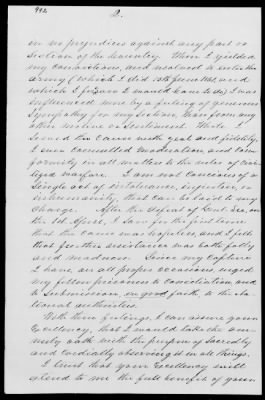 992
2.
in no prejudices against any part or
section of the country. When I yielded
my convictions, and resolved to enter the
army (which I did 10th June 1861, and
which I foresaw I would have to do) I was
influenced more by a feeling of generous
sympathy for my section, than from any
other motive or sentiment. While I
served the cause with zeal and fidelity,
I ever committed moderation, and con-
formity in all matters to the rules of civi-
lized warfare. I am not conscious of a
single act of intolerance, injustice, or
inhumanity, that can be laid to my
charge. After the defeat of Genl. Lee, on
the April, I saw for the first time
that the cause was hopeless, and I felt
that further resistance was both folly
and madness. Since my capture
I have on all proper occasions urged
my fellow prisoners to conciliation, and
to submission, in good faith to the Na-
tional authorities.
With these feelings, I can assure your
Excellency, that I would take the am-
nesty oath with the purpose of sacredly
and cordially observing it in all things.
I trust that your Excellency will
extend to me the full benefit of your